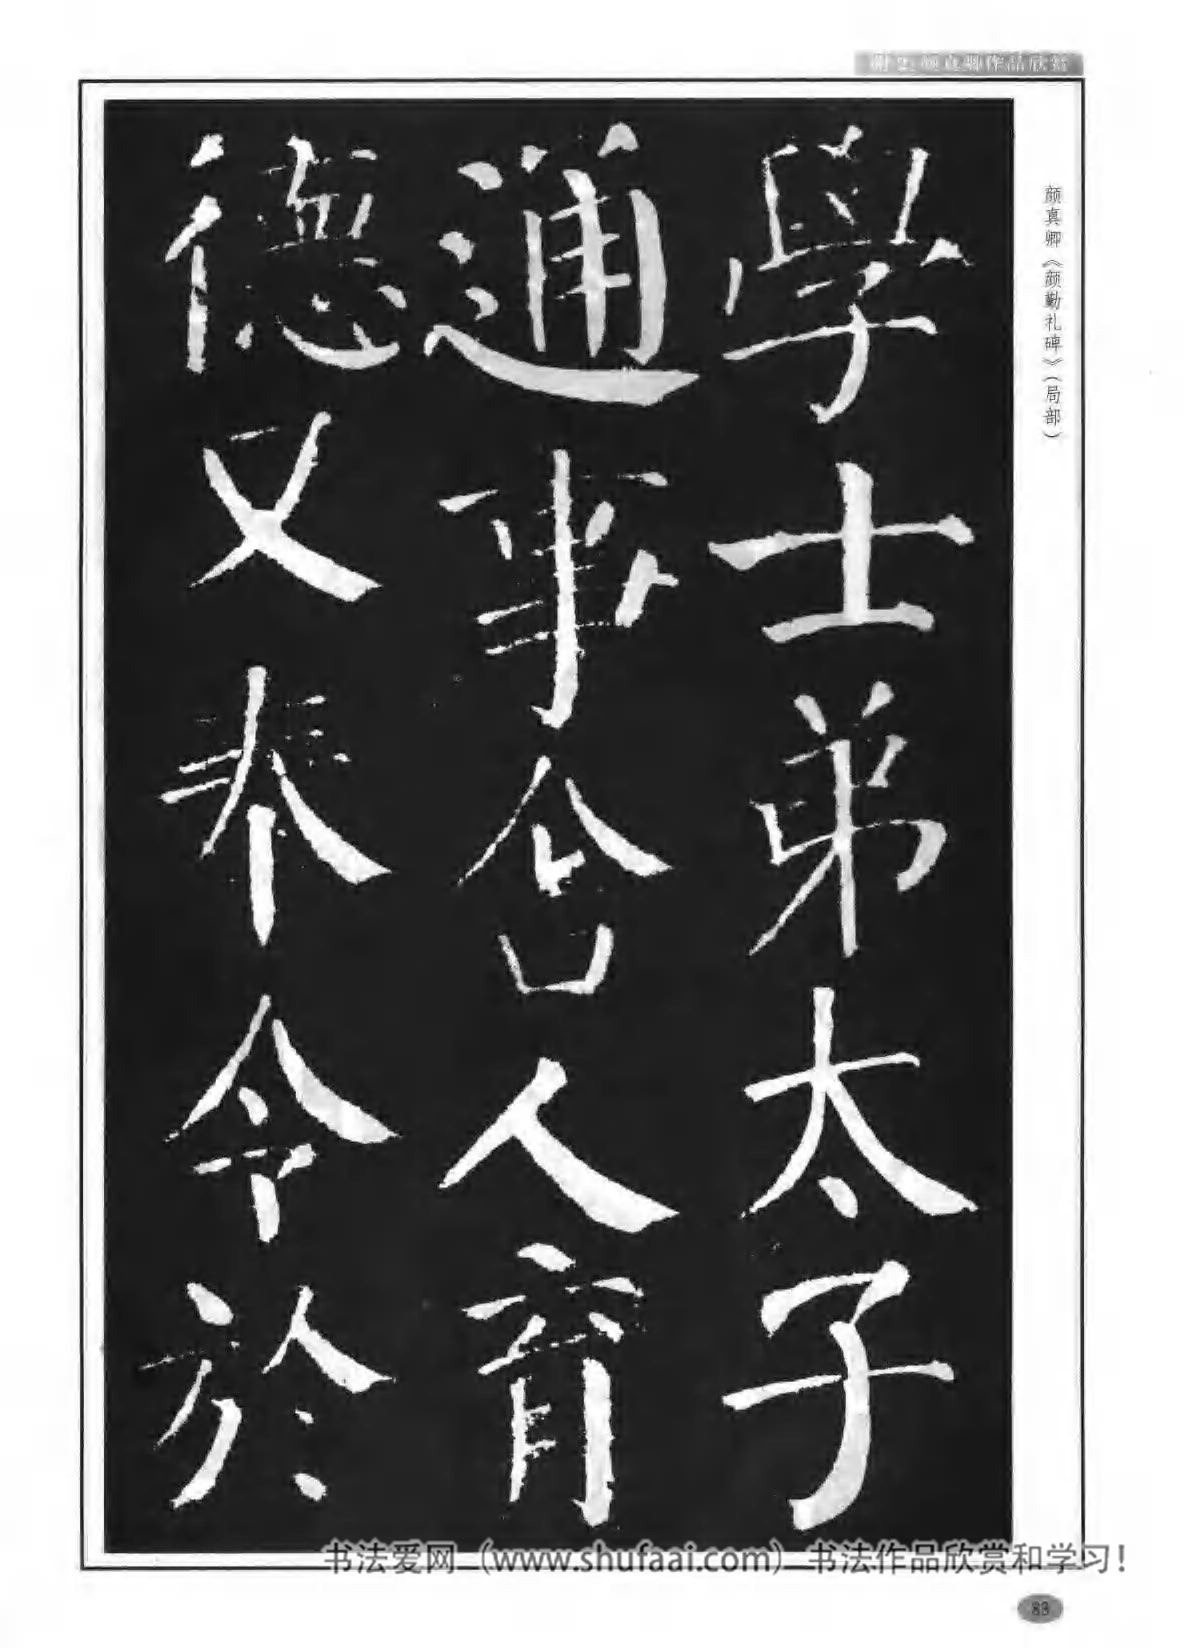 附2:颜真卿作品欣赏
颜真卿《颜勤礼碑》（局部）
學士弟太子
通事舍人育
德又奉令於
书法爱网（www.shufaai.com）书法作品欣赏和学习！
83